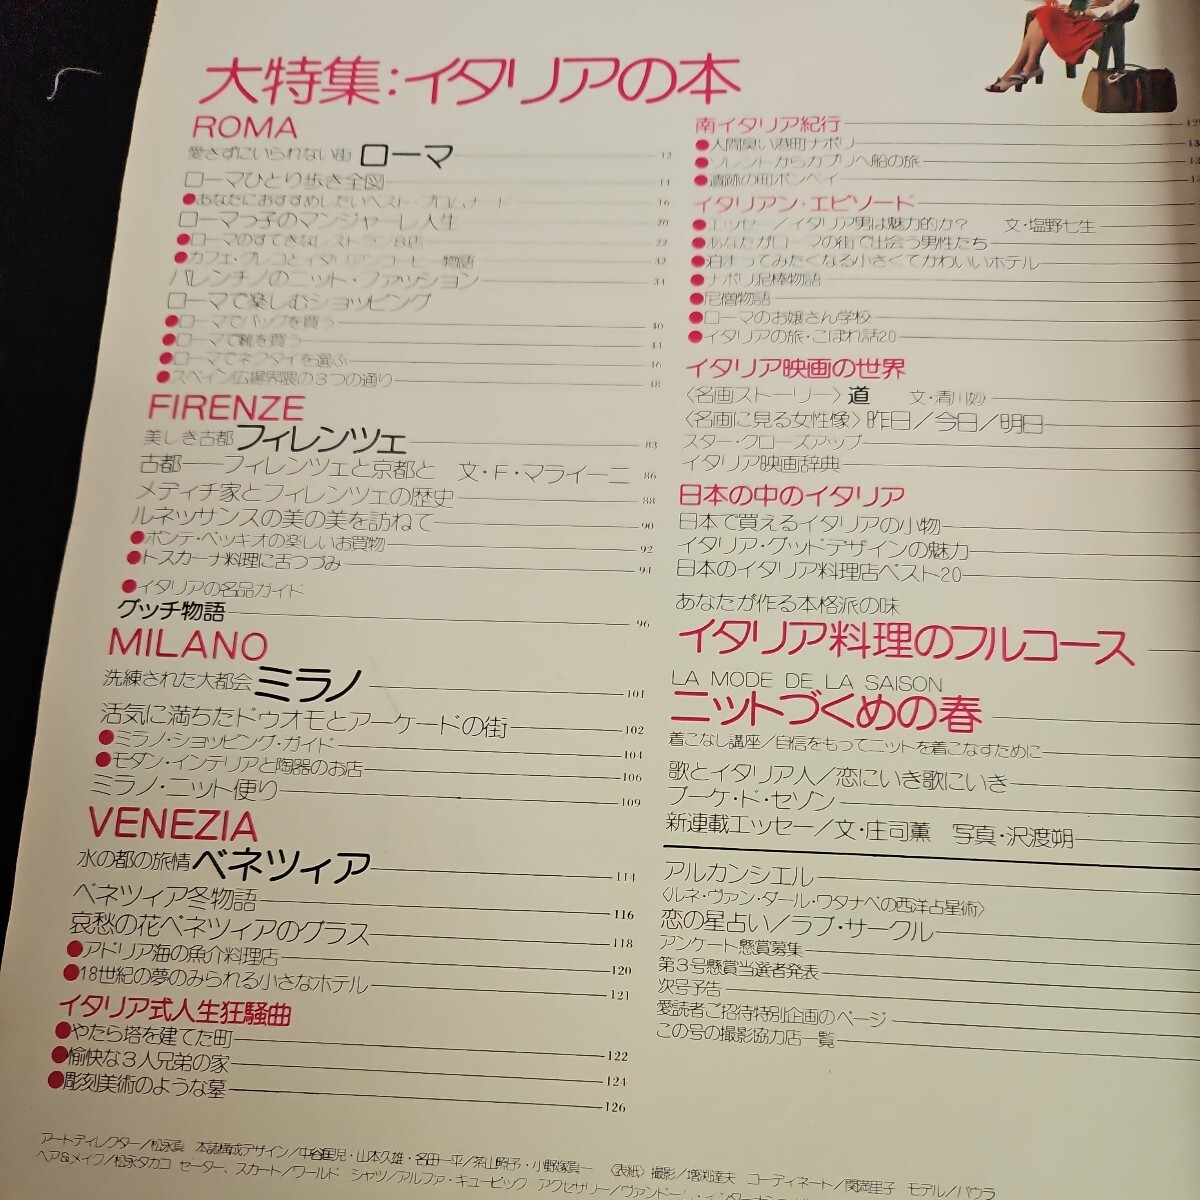 大特集:イタリアの本
ROMA
愛さずにいられない街 ローマ 12
ローマひとり歩き全図 14
●あなたにおすすめしたいベスト・プロムナード 16
ローマっ子のマンジャーレ人生 20
●ローマのすてきなレストラン8店 22
●カフェ・グレコとイタリアンコーヒー物語 32
バレンチノのニット・ファッション 34
ローマで楽しむショッピング
●ローマでバッグを買う 40
●ローマで靴を買う 44
●ローマでネクタイを選ぶ 46
●スペイン広場界隈の3つの通り 48
FIRENZE
美しき古都 フィレンツェ 83
古都──フィレンツェと京都と 文・F・マライーニ 86
メディチ家とフィレンツェの歴史 88
ルネッサンスの美の美を訪ねて 90
●ポンテ・ベッキオの楽しいお買物 92
●トスカーナ料理に舌つづみ 94
●イタリアの名品ガイド
グッチ物語 96
MILANO
洗練された大都会 ミラノ 101
活気に満ちたドゥオモとアーケードの街 102
●ミラノ・ショッピング・ガイド 104
●モダン・インテリアと陶器のお店 106
ミラノ・ニット便り 109
VENEZIA
水の都の旅情 ベネツィア 114
ベネツィア冬物語 116
哀愁の花ベネツィアのグラス 118
●アドリア海の魚介料理店 120
●18世紀の夢のみられる小さなホテル 121
イタリア式人生狂騒曲
●やたら塔を建てた町 122
●愉快な3人兄弟の家 124
●彫刻美術のような墓 126
南イタリア紀行
●人間臭い港町ナポリ
●ソレントからカプリへ船の旅
●遺跡の町ポンペイ
イタリアン・エピソード
●エッセー/イタリア男は魅力的か? 文・塩野七生
●あなたがローマの街で出会う男性たち
●泊まってみたくなる小さくてかわいいホテル
●ナポリ泥棒物語
●尼僧物語
●ローマのお嬢さん学校
●イタリアの旅・こぼれ話20
イタリア映画の世界
〈名画ストーリー〉道 文・清川妙
〈名画に見る女性像〉昨日/今日/明日
スター・クローズアップ
イタリア映画辞典
日本の中のイタリア
日本で買えるイタリアの小物
イタリア・グッドデザインの魅力
日本のイタリア料理店ベスト20
あなたが作る本格派の味
イタリア料理のフルコース
LA MODE DE LA SAISON
ニットづくめの春
着こなし講座/自信をもってニットを着こなすために
歌とイタリア人/恋にいき歌にいき
ブーケ・ド・セゾン
新連載エッセー/文・庄司薫 写真・沢渡朔
アルカンシエル
〈ルネ・ヴァン・ダール・ワタナベの西洋占星術〉
恋の星占い/ラブ・サークル
アンケート懸賞募集
第3号懸賞当選者発表
次号予告
愛読者ご招待特別企画のページ
この号の撮影協力店一覧
アートディレクター/松永真 本誌構成デザイン/中谷匡児・山本久雄・名田一平/茶山照予・小野塚真一 〈表紙〉撮影/増渕達夫 コーディネート/関満里子 モデル/パウラ
ヘア&メイク/松永タカコ セーター、スカート/ワールド シャツ/アルファ・キュービック アクセサリー/ヴァンドーム